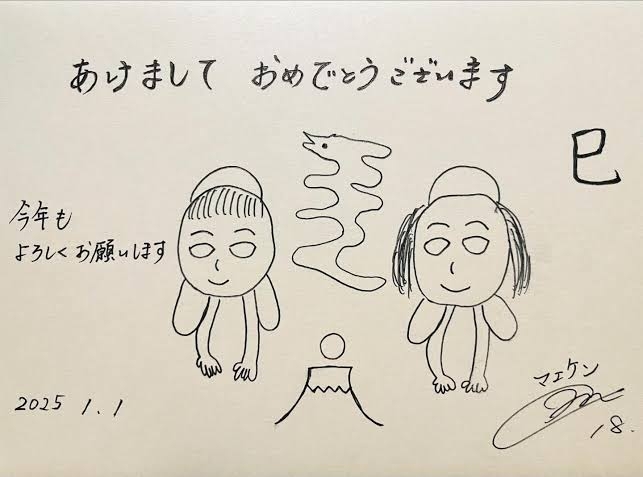 あけまして おめでとうございます
巳
今年も
よろしくお願いします
2025 1.1
マエケン
18.